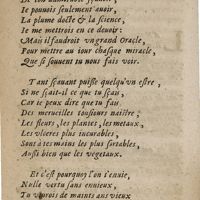 Je pouvois seulement auoir,
La plume docte & la science,
Ie me mettrois en ce deuoir:
Mais il faudroit vn grand Oracle,
Pour mettre au iour chasque miracle,
Que si souuent tu nous fais voir.
Tant sçauant puisse quelqu'vn estre,
Si ne sçait-il ce que tu sçais,
Car ie peux dire que tu fais
Des merueilles tousiours naistre;
Les fleurs, les plantes, les metaux,
Les vlceres plus incurables,
Sont à tes mains les plus sortables,
Aussi bien que les vegetaux.
Et c'est pourquoy l'on t'enuie,
Nulle vertu sans ennieux,
Tu viurois de maints ans vieux